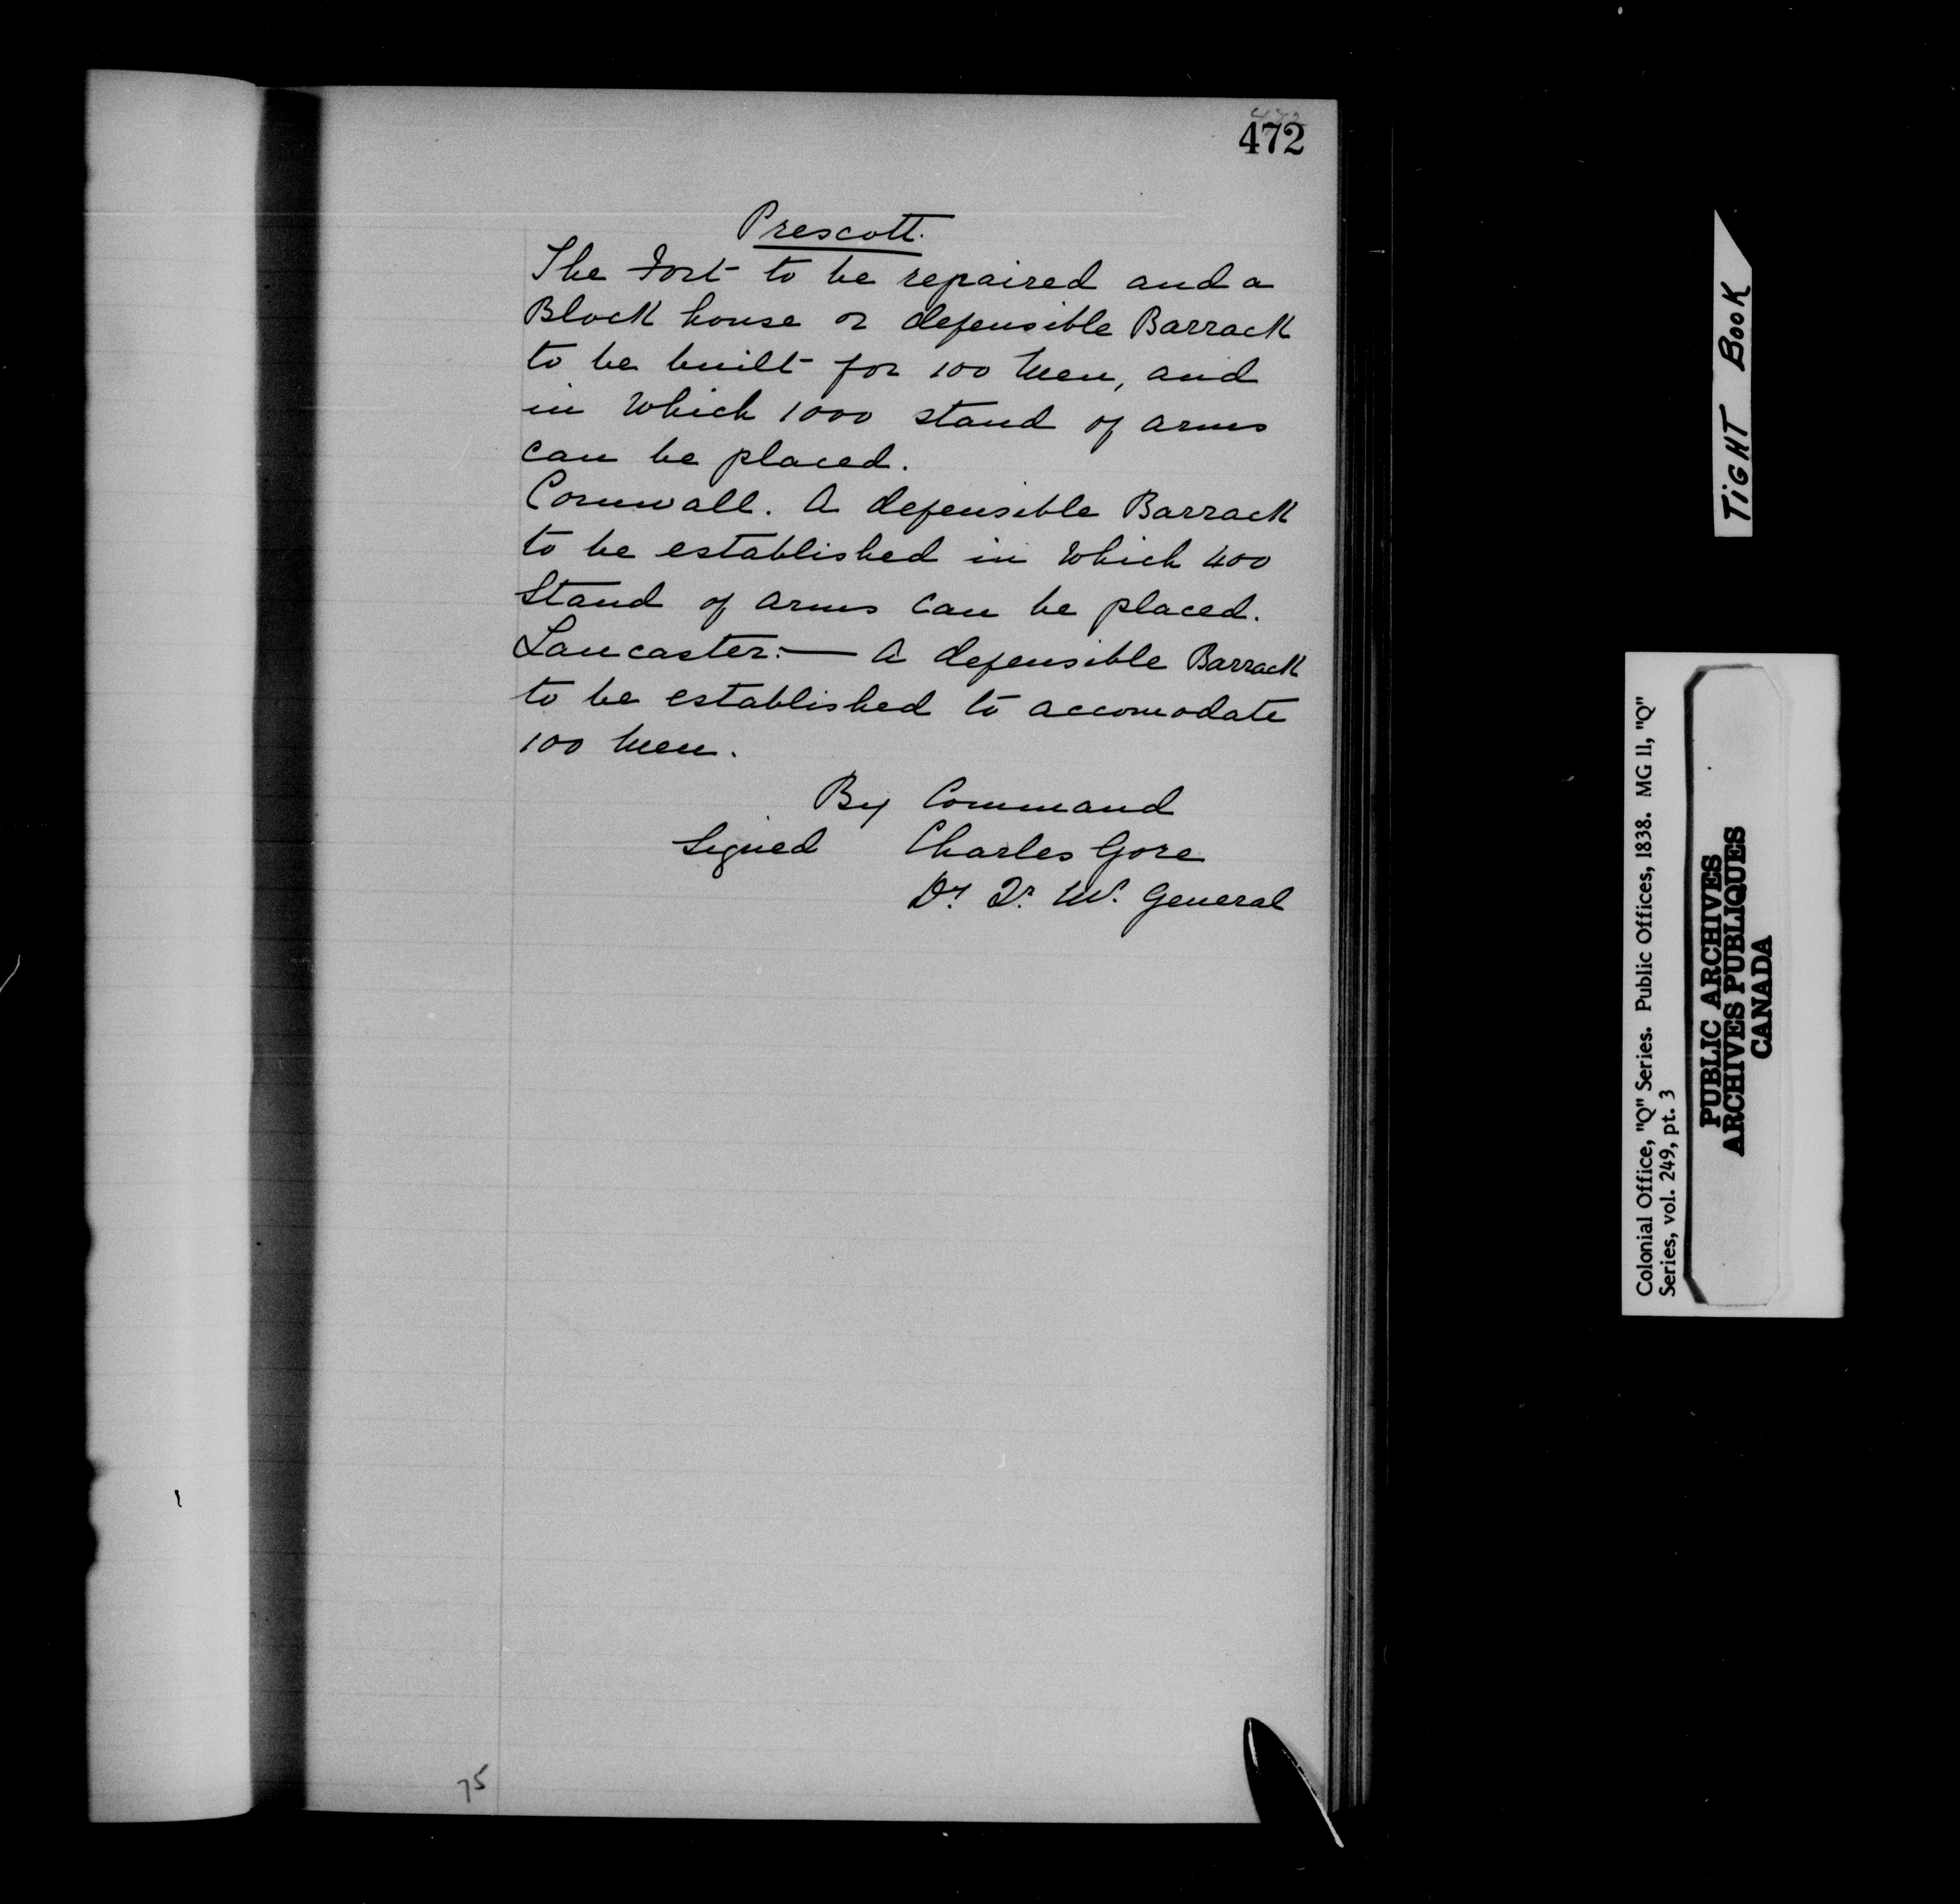 472
472
Prescott.
The Fort to be repaired and a
Block house or defensible Barrack
to be built for 100 Men, and
in Which 1000 stand of arms
can be placed.
Cornwall. A defensible Barrack
to be established in Which 400
Stand of arms can be placed.
Lancaster:— A defensible Barrack
to be established to accomodate
100 Men.
By Command
Signed Charles Gore
Dy. Qr. Mr. General
75
TIGHT BOOK
Colonial Office, "Q" Series. Public Offices, 1838. MG 11, "Q"
Series, vol. 249, pt. 3
PUBLIC ARCHIVES
ARCHIVES PUBLIQUES
CANADA